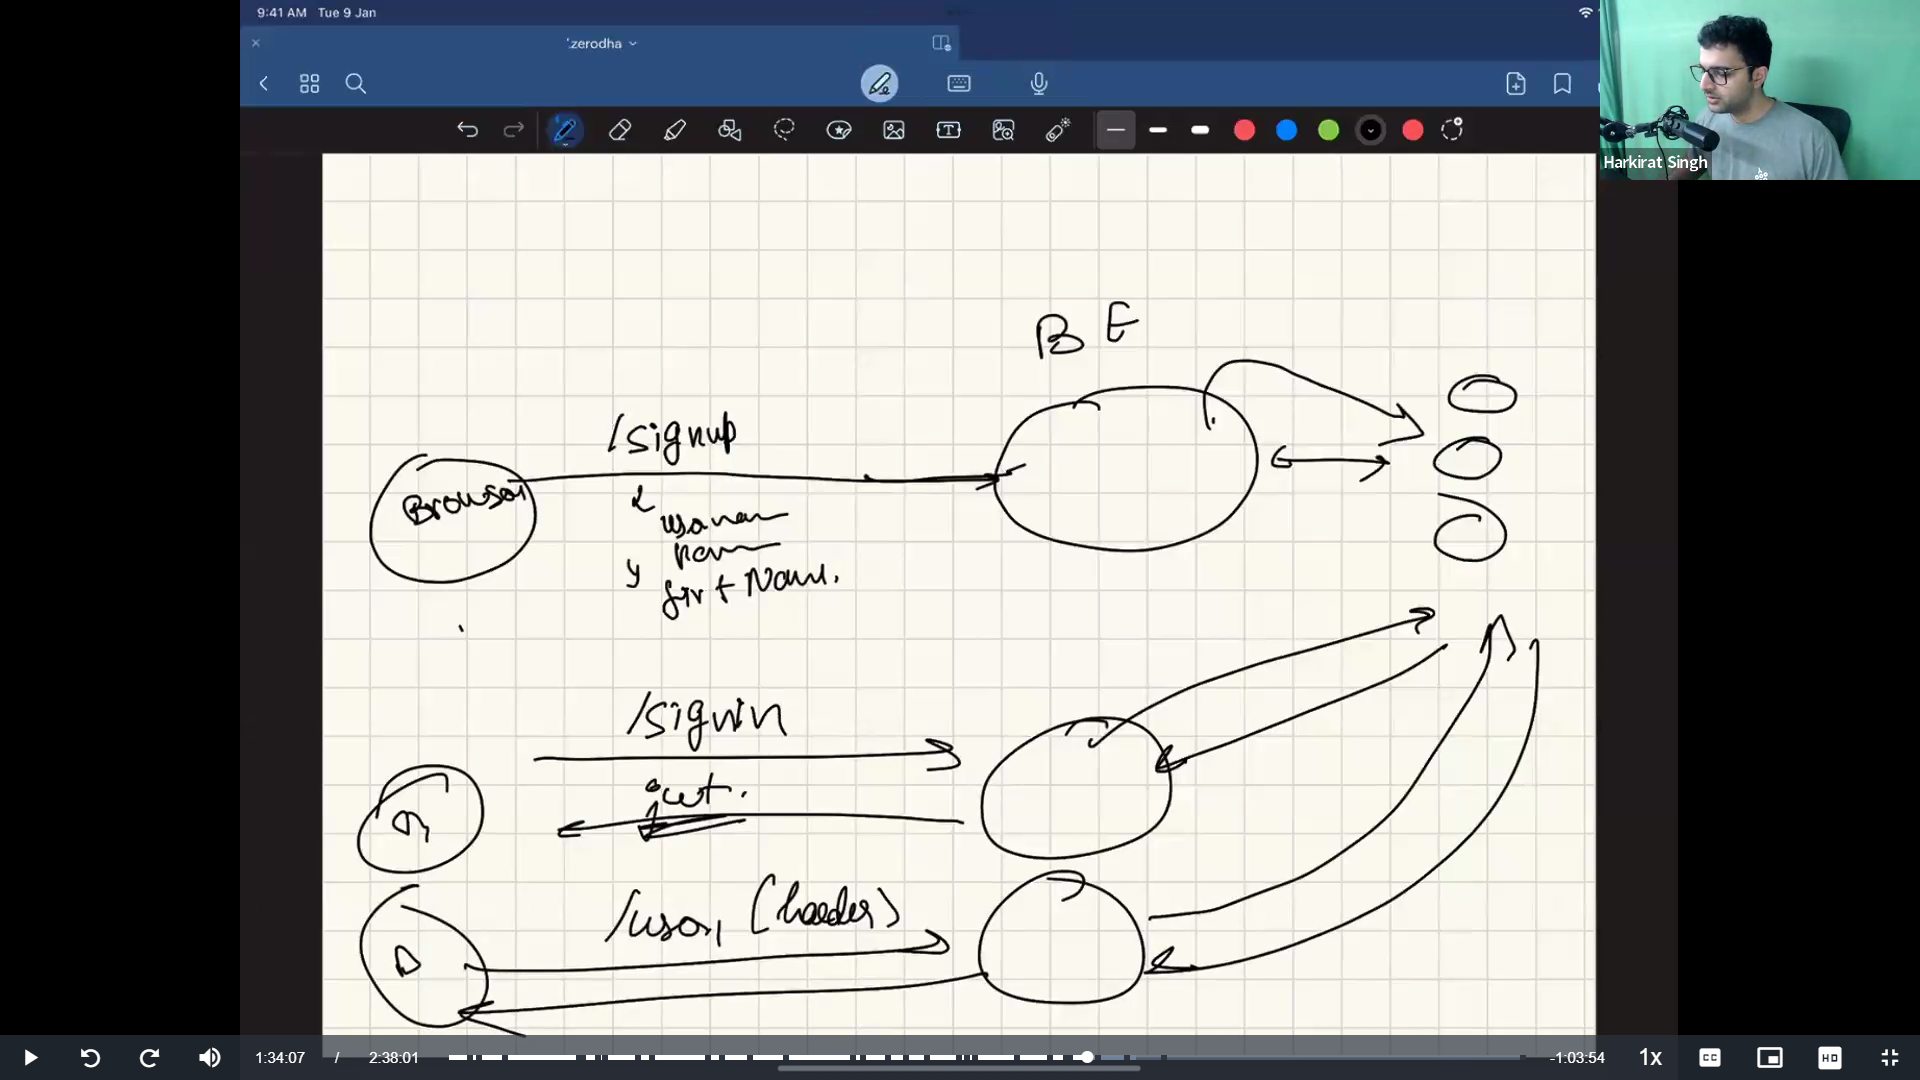 9:41 AM Tue 9 Jan
'zerodha
Harkirat Singh
BE
/signup
Browser
{
}
first Name.
/signin
jwt.
/user, (header)
1:34:07 / 2:38:01
-1:03:54
1x
CC
HD